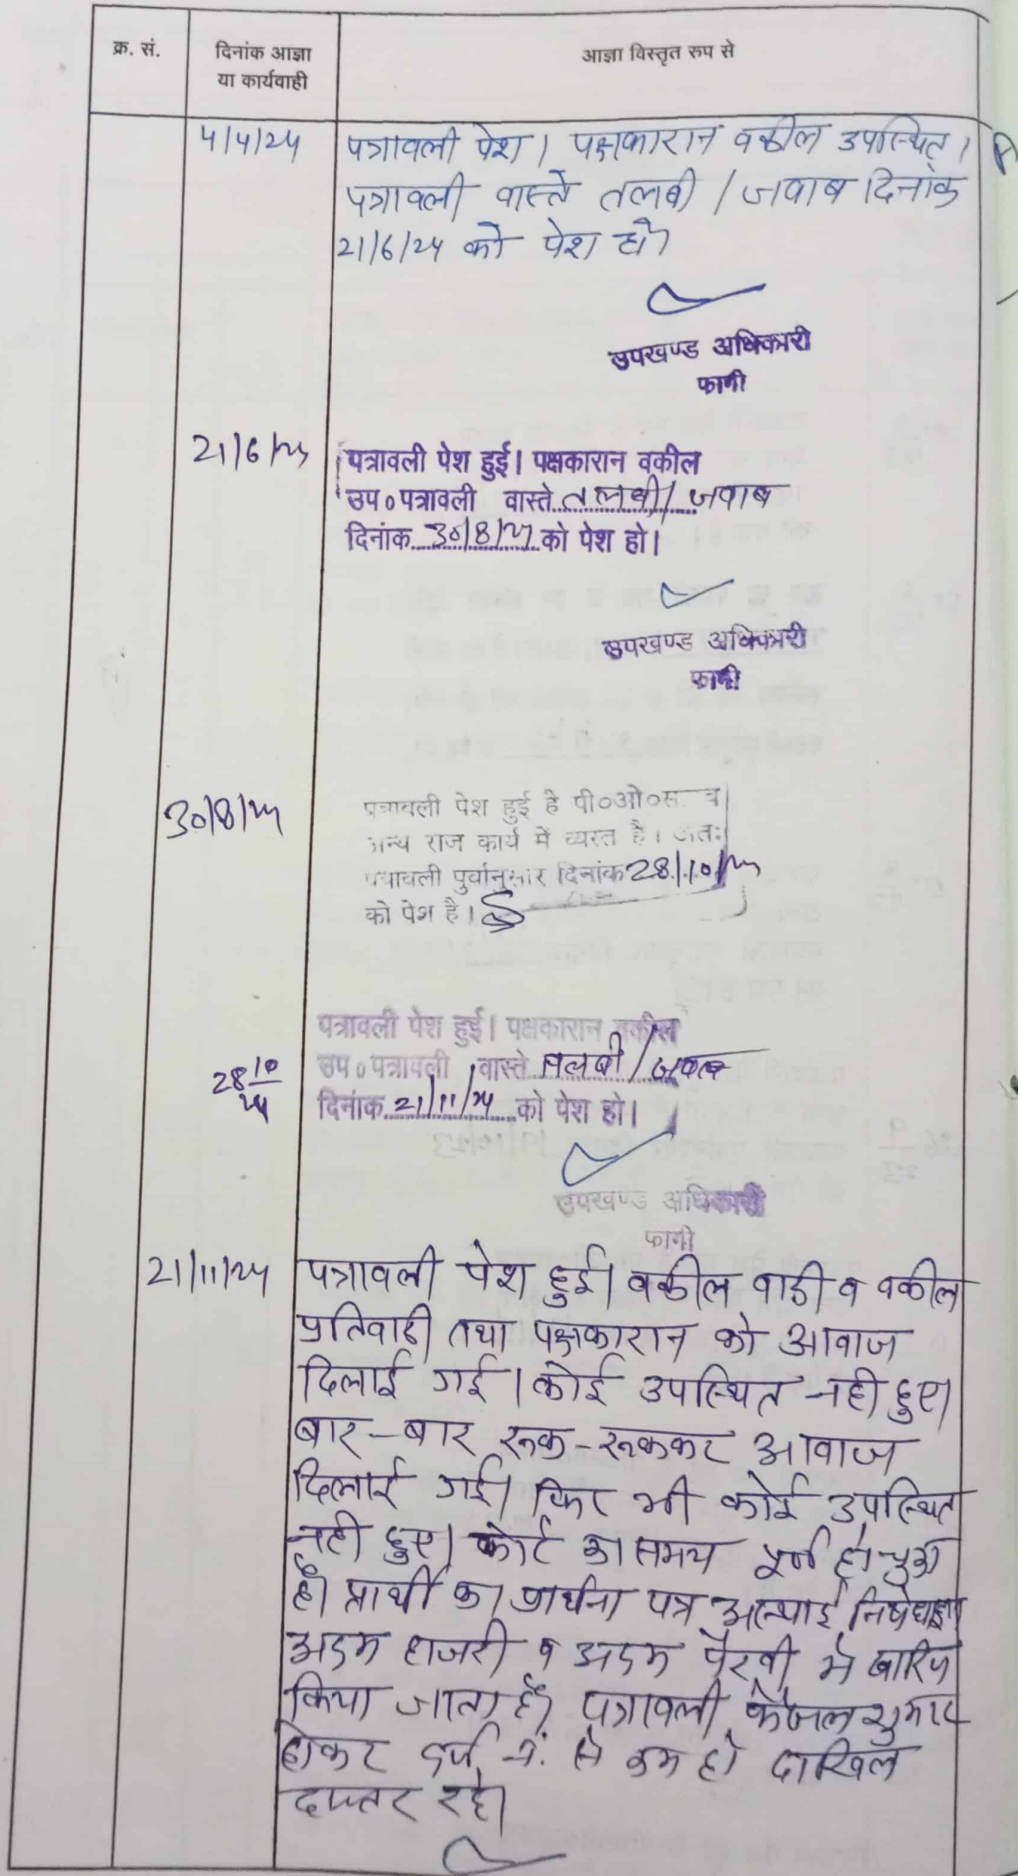 क्र. सं.
दिनांक आज्ञा
या कार्यवाही
आज्ञा विस्तृत रुप से
4/4/24
पत्रावली पेश। पक्षकारान वकील उपस्थित।
पत्रावली वास्ते तलबी / जवाब दिनांक
21/6/24 को पेश हो
उपखण्ड अधिकारी
फागी
21/6/24
पत्रावली पेश हुई। पक्षकारान वकील
उप० पत्रावली वास्ते तलबी/जवाब
दिनांक 30/8/24 को पेश हो।
उपखण्ड अधिकारी
फागी
30/8/24
पत्रावली पेश हुई है पी०ओ०स
अन्य राज कार्य में व्यस्त है। अतः
पत्रावली पुर्वानुसार दिनांक 28/10/24
को पेश है।
28/10/24
पत्रावली पेश हुई। पक्षकारान वकील
उप० पत्रावली वास्ते तलबी/जवाब
दिनांक 21/11/24 को पेश हो।
उपखण्ड अधिकारी
फागी
21/11/24
पत्रावली पेश हुई। वकील वादी व वकील
प्रतिवादी तथा पक्षकारान को आवाज
दिलाई गई। कोई उपस्थित नही हुए।
बार-बार रूक-रूककर आवाज
दिलाई गई। फिर भी कोई उपस्थित
नही हुए। कोर्ट का समय पूर्ण हो चुका
है। प्रार्थी का प्रार्थना पत्र अस्थाई निषेधाज्ञा
अदम हाजरी व अदम पैरवी मे खारिज
किया जाता है। पत्रावली फैजल शुमार
होकर दर्ज नं. से कम हो दाखिल
दफ्तर रहे।